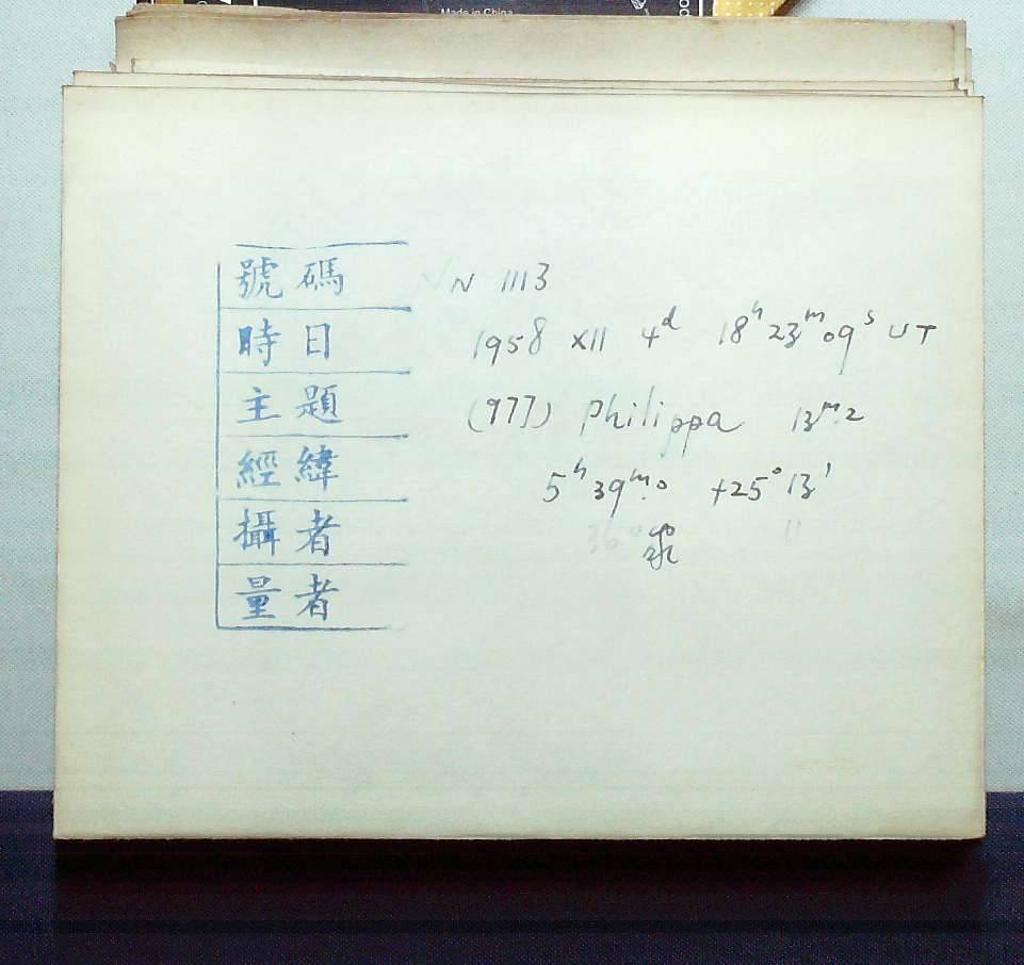 Made in China
號碼 N 1113
時日 1958 XII 4ᵈ 18ʰ 23ᵐ 09ˢ UT
主題 (977) Philippa 13ᵐ.2
經緯 5ʰ 39ᵐ.0 +25° 13'
36° 11
攝者
量者